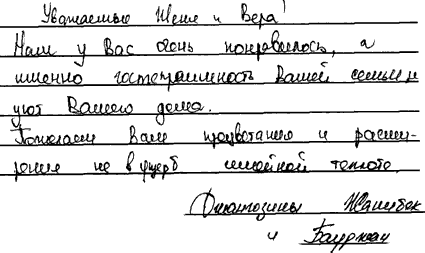 Уважаемые Женя и Вера!
Нам у Вас очень понравилось, а
именно гостеприимность Вашей семьи и
уют Вашего дома.
Пожелаем Вам процветания и расши-
рения не в ущерб семейной теплоте.
Жанибек
и Бауржан